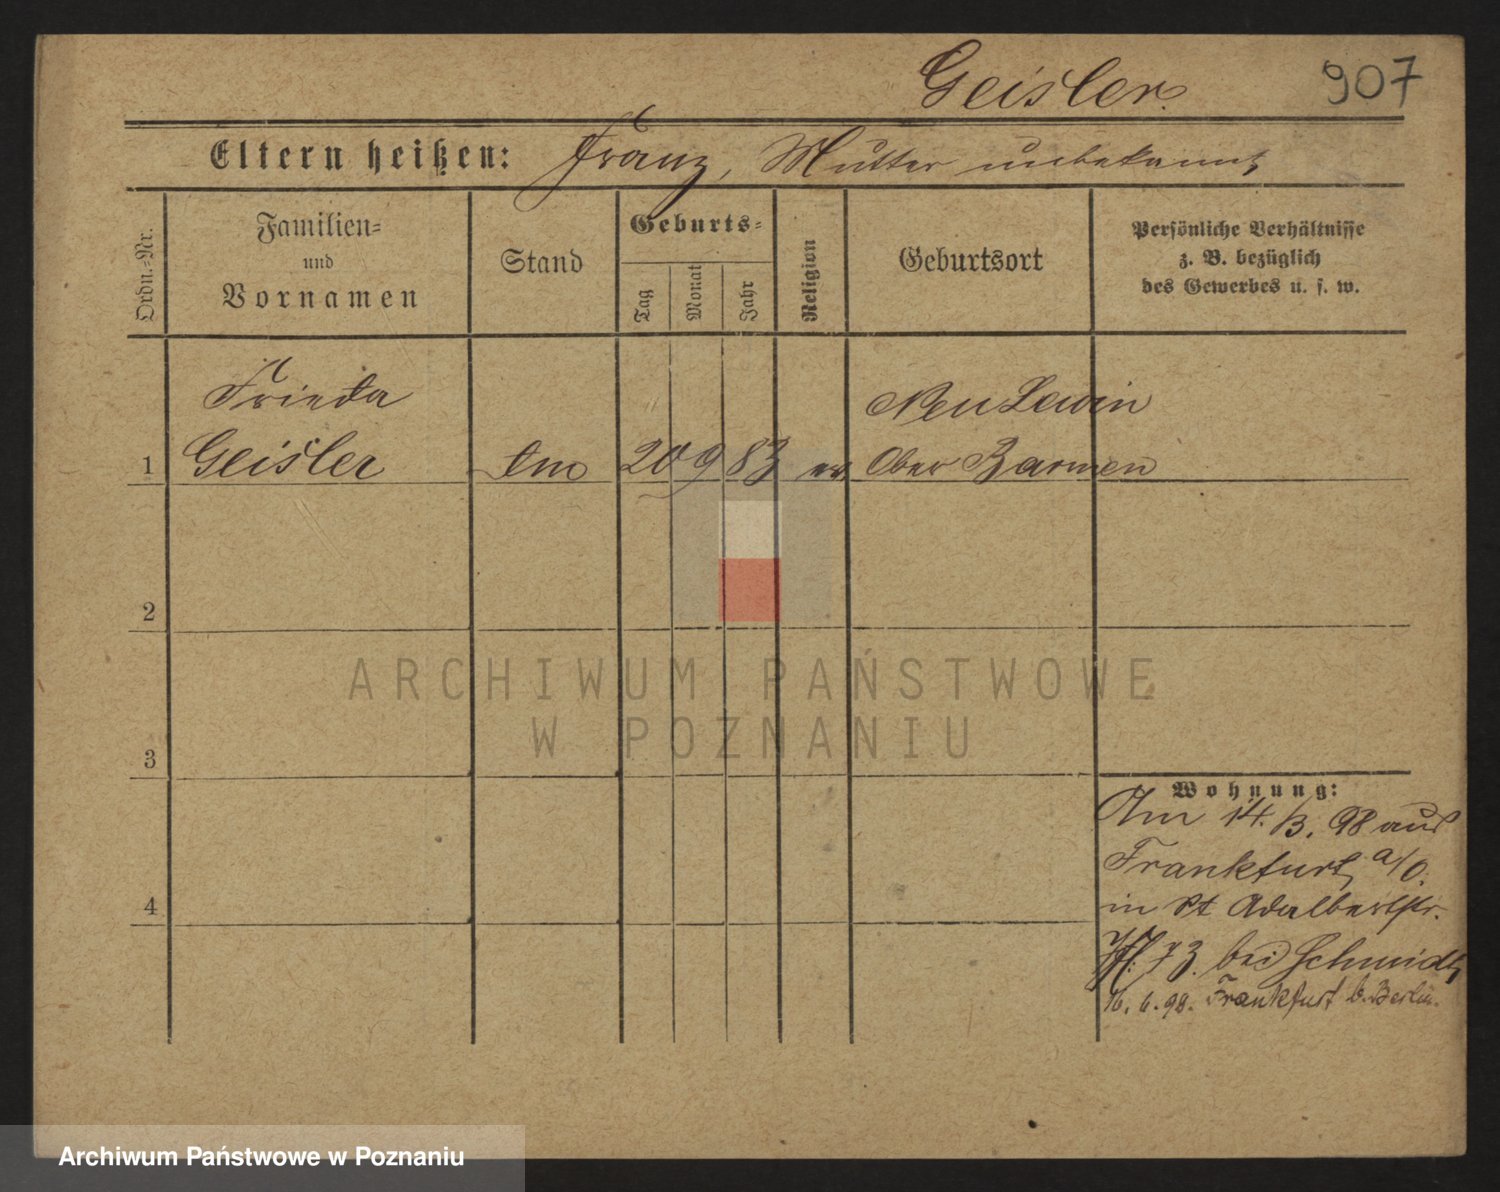 Geisler.
907
Eltern heißen: Franz, Mutter unbekannt
Ordn.-Nr.
Familien-
und
Vornamen
Stand
Geburts-
Tag
Monat
Jahr
Religion
Geburtsort
Persönliche Verhältnisse
z. B. bezüglich
des Gewerbes u. s. w.
Frieda
Neu Lewin
1 Geisler 20 9 83 ev Ober Barmen
2
3
4
Wohnung:
Am 14./3. 98 aus
Frankfurt a/O.
in Adalbertstr.
bei Schmidt
16. 6. 98. Frankfurt b. Berlin.
ARCHIWUM PAŃSTWOWE
W POZNANIU
Archiwum Państwowe w Poznaniu